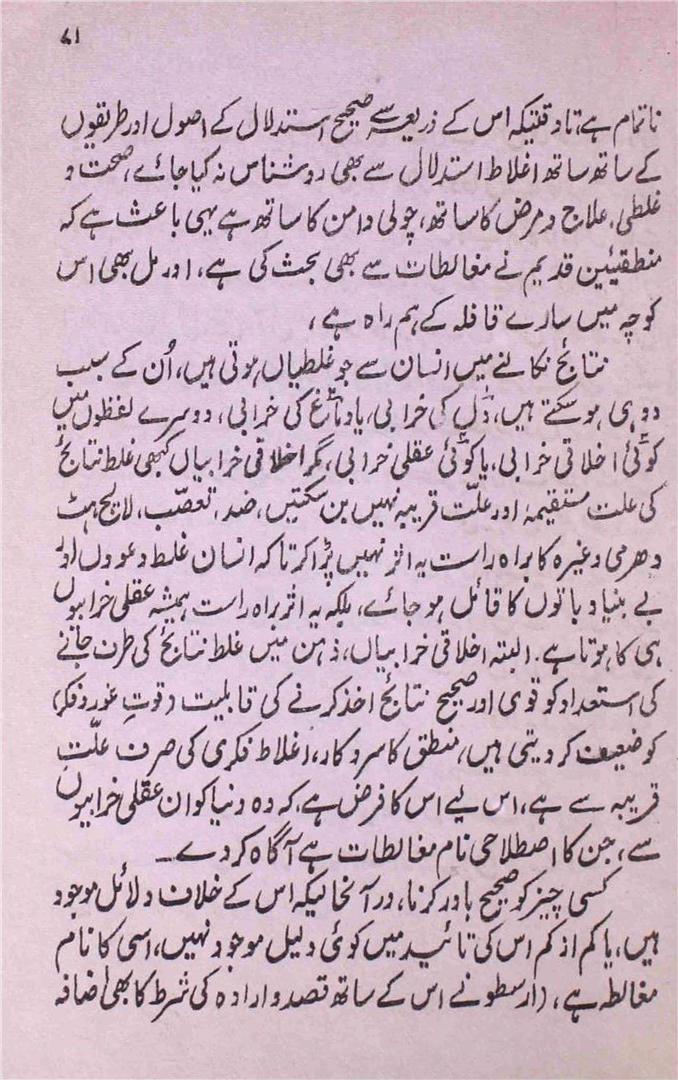 ۴۱
ناتمام ہے، تاوقتیکہ اس کے ذریعہ سے صحیح استدلال کے اصول اور طریقوں
کے ساتھ ساتھ اغلاط استدلال سے بھی روشناس نہ کیا جائے، صحت و
غلطی، علاج و مرض کا ساتھ، چولی دامن کا ساتھ ہے یہی باعث ہے کہ
منطقیئین قدیم نے مغالطات سے بھی بحث کی ہے، اور مل بھی اس
کوچہ میں سارے قافلہ کے ہم راہ ہے،
نتائج نکالنے میں انسان سے جو غلطیاں ہوتی ہیں، اُن کے سبب
دو ہی ہو سکتے ہیں، دل کی خرابی، یا دماغ کی خرابی، دوسرے لفظوں میں
کوئی اخلاقی خرابی، یا کوئی عقلی خرابی، مگر اخلاقی خرابیاں کبھی غلط نتائج
کی علت مستقیمہ اور علّت قریبہ نہیں بن سکتیں، ضد، تعصّب، لالچ، ہٹ
دھرمی وغیرہ کا براہ راست یہ اثر نہیں پڑا کرتا کہ انسان غلط دعووں اور
بے بنیاد باتوں کا قائل ہو جائے، بلکہ یہ اثر براہ راست ہمیشہ عقلی خرابیوں
ہی کا ہوتا ہے۔ البتہ اخلاقی خرابیاں، ذہن میں غلط نتائج کی طرف جانے
کی استعداد کو قوی اور صحیح نتائج اخذ کرنے کی قابلیت (قوتِ غور و فکر)
کو ضعیف کر دیتی ہیں، منطق کا سروکار، اغلاط فکری کی صرف علّتِ
قریبہ سے ہے، اس لیے اس کا فرض ہے، کہ وہ دنیا کو ان عقلی خرابیوں
سے، جن کا اصطلاحی نام مغالطات ہے آگاہ کر دے۔
کسی چیز کو صحیح باور کرنا، درآنحالیکہ اس کے خلاف دلائل موجود
ہیں، یا کم از کم اس کی تائید میں کوئی دلیل موجود نہیں، اسی کا نام
مغالطہ ہے، (ارسطو نے اس کے ساتھ قصد و ارادہ کی شرط کا بھی اضافہ